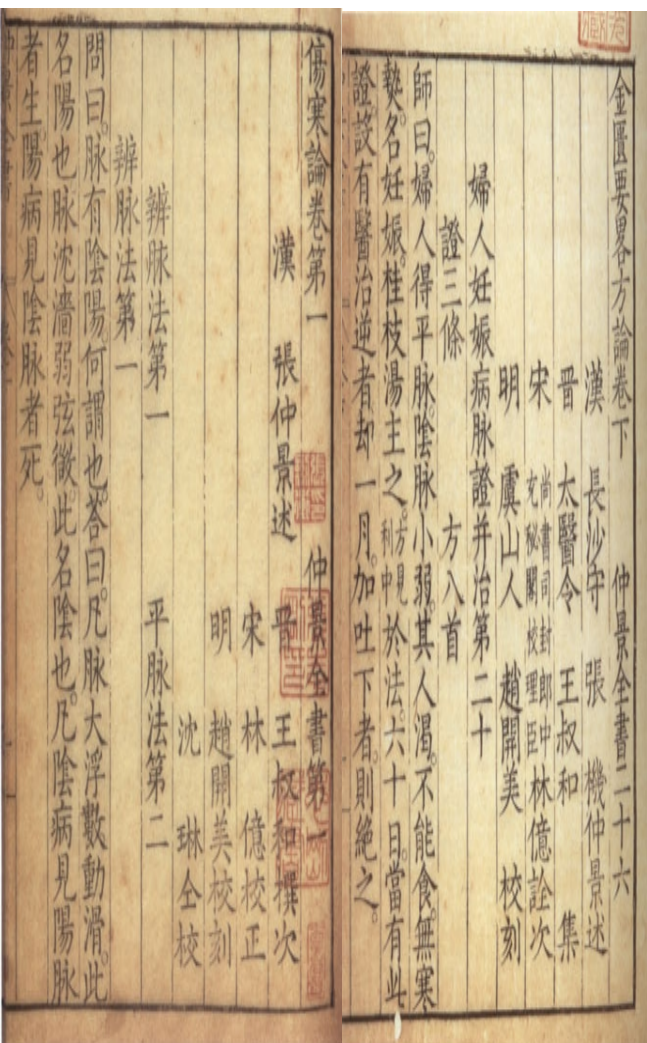 金匱要畧方論卷下　仲景全書二十六
漢　長沙守　張　機仲景述
晋　太醫令　王叔和　集
宋　尚書司封郎中充秘閣校理臣　林億詮次
明　虞山人　趙開美　校刻
婦人妊娠病脉證并治第二十
證三條　方八首
師曰。婦人得平脉。陰脉小弱。其人渴。不能食。無寒
熱。名妊娠。桂枝湯主之。方見利中於法。六十日。當有此
證。設有醫治逆者。却一月。加吐下者。則絶之。
傷寒論卷第一　仲景全書第一
漢　張仲景述　晋　王叔和撰次
宋　林　億校正
明　趙開美校刻
沈　琳仝校
辨脉法第一　平脉法第二
辨脉法第一
問曰。脉有陰陽。何謂也。荅曰。凡脉大浮數動滑。此
名陽也。脉沈濇弱弦微。此名陰也。凡陰病見陽脉
者生。陽病見陰脉者死。